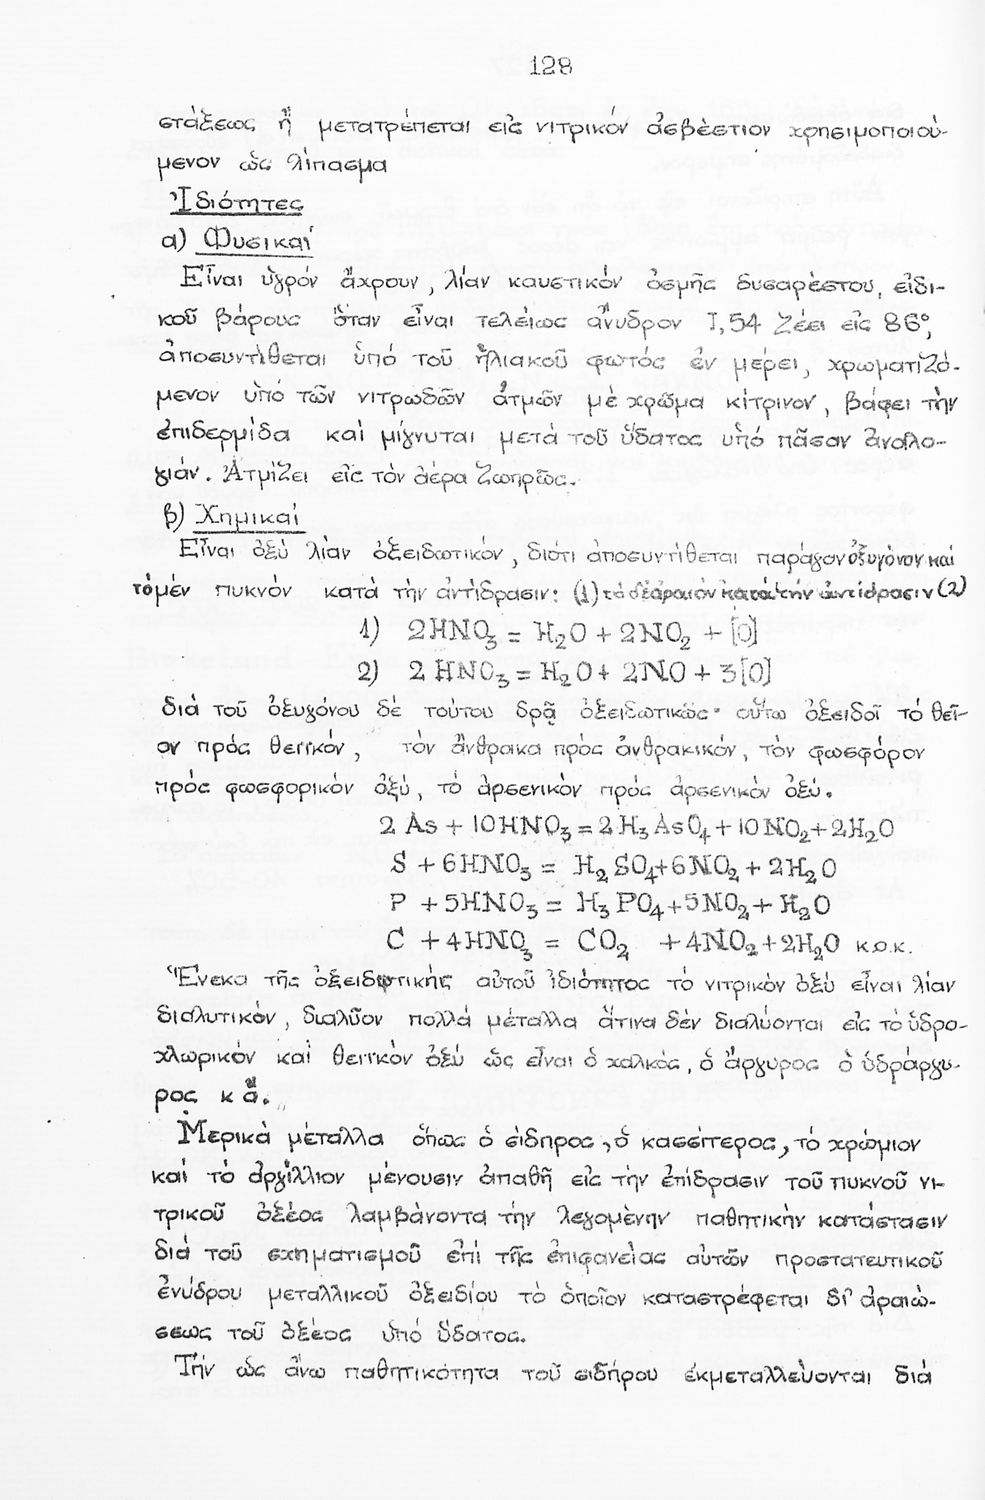 128
στάξεως ἤ μετατρέπεται εἰς νιτρικόν ἀσβέστιον χρησιμοποιού-
μενον ὡς λίπασμα
Ἰδιότητες
α) Φυσικαί
Εἶναι ὑγρόν ἄχρουν, λίαν καυστικόν ὀσμῆς δυσαρέστου, εἰδι-
κοῦ βάρους ὅταν εἶναι τελείως ἄνυδρον 1,54 Ζέει εἰς 86°,
ἀποσυντίθεται ὑπό τοῦ ἡλιακοῦ φωτός ἐν μέρει, χρωματιζό-
μενον ὑπό τῶν νιτρωδῶν ἀτμῶν μέ χρῶμα κίτρινον, βάφει τὴν
ἐπιδερμίδα καί μίγνυται μετά τοῦ ὕδατος ὑπό πᾶσαν ἀναλο-
γίαν. Ἀτμίζει εἰς τόν ἀέρα ζωηρῶς.
β) Χημικαί
Εἶναι ὀξύ λίαν ὀξειδωτικόν, διότι ἀποσυντίθεται παράγον ὀξυγόνον καί
τό μέν πυκνόν κατά τήν ἀντίδρασιν: (1) τό δέ ἀραιόν κατά τήν ἀντίδρασιν (2)
1) 2HNO₃ = H₂O + 2NO₂ + [O]
2) 2HNO₃ = H₂O + 2NO + 3[O]
διά τοῦ ὀξυγόνου δέ τούτου δρᾷ ὀξειδωτικῶς· οὕτω ὀξειδοῖ τό θεῖ-
ον πρός θειϊκόν, τόν ἄνθρακα πρός ἀνθρακικόν, τόν φωσφόρον
πρός φωσφορικόν ὀξύ, τό ἀρσενικόν πρός ἀρσενικόν ὀξύ.
2 As + 10HNO₃ = 2H₃AsO₄ + 10NO₂ + 2H₂O
S + 6HNO₃ = H₂SO₄ + 6NO₂ + 2H₂O
P + 5HNO₃ = H₃PO₄ + 5NO₂ + H₂O
C + 4HNO₃ = CO₂ + 4NO₂ + 2H₂O κ.ο.κ.
Ἕνεκα τῆς ὀξειδωτικῆς αὐτοῦ ἰδιότητος τό νιτρικόν ὀξύ εἶναι λίαν
διαλυτικόν, διαλῦον πολλά μέταλλα ἅτινα δέν διαλύονται εἰς τό ὑδρο-
χλωρικόν καί θειϊκόν ὀξύ ὡς εἶναι ὁ χαλκός, ὁ ἄργυρος ὁ ὑδράργυ-
ρος κ ἄ.
Μερικά μέταλλα ὅπως ὁ σίδηρος, ὁ κασσίτερος, τό χρώμιον
καί τό ἀργίλλιον μένουσιν ἀπαθῆ εἰς τήν ἐπίδρασιν τοῦ πυκνοῦ νι-
τρικοῦ ὀξέος λαμβάνοντα τήν λεγομένην παθητικὴν κατάστασιν
διά τοῦ σχηματισμοῦ ἐπί τῆς ἐπιφανείας αὐτῶν προστατευτικοῦ
ἐνύδρου μεταλλικοῦ ὀξειδίου τό ὁποῖον καταστρέφεται δι' ἀραιώ-
σεως τοῦ ὀξέος ὑπό ὕδατος.
Τήν ὡς ἄνω παθητικότητα τοῦ σιδήρου ἐκμεταλλεύονται διά